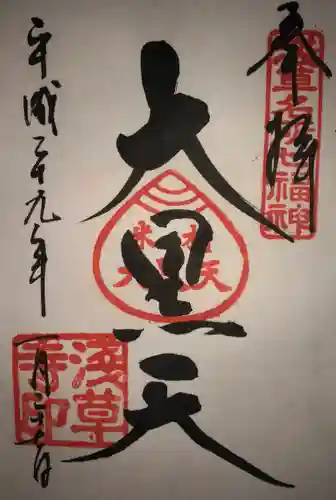 奉拝
浅草名所七福神
大黒天
米櫃
大黒天
平成二十九年
一月
浅草
寺印